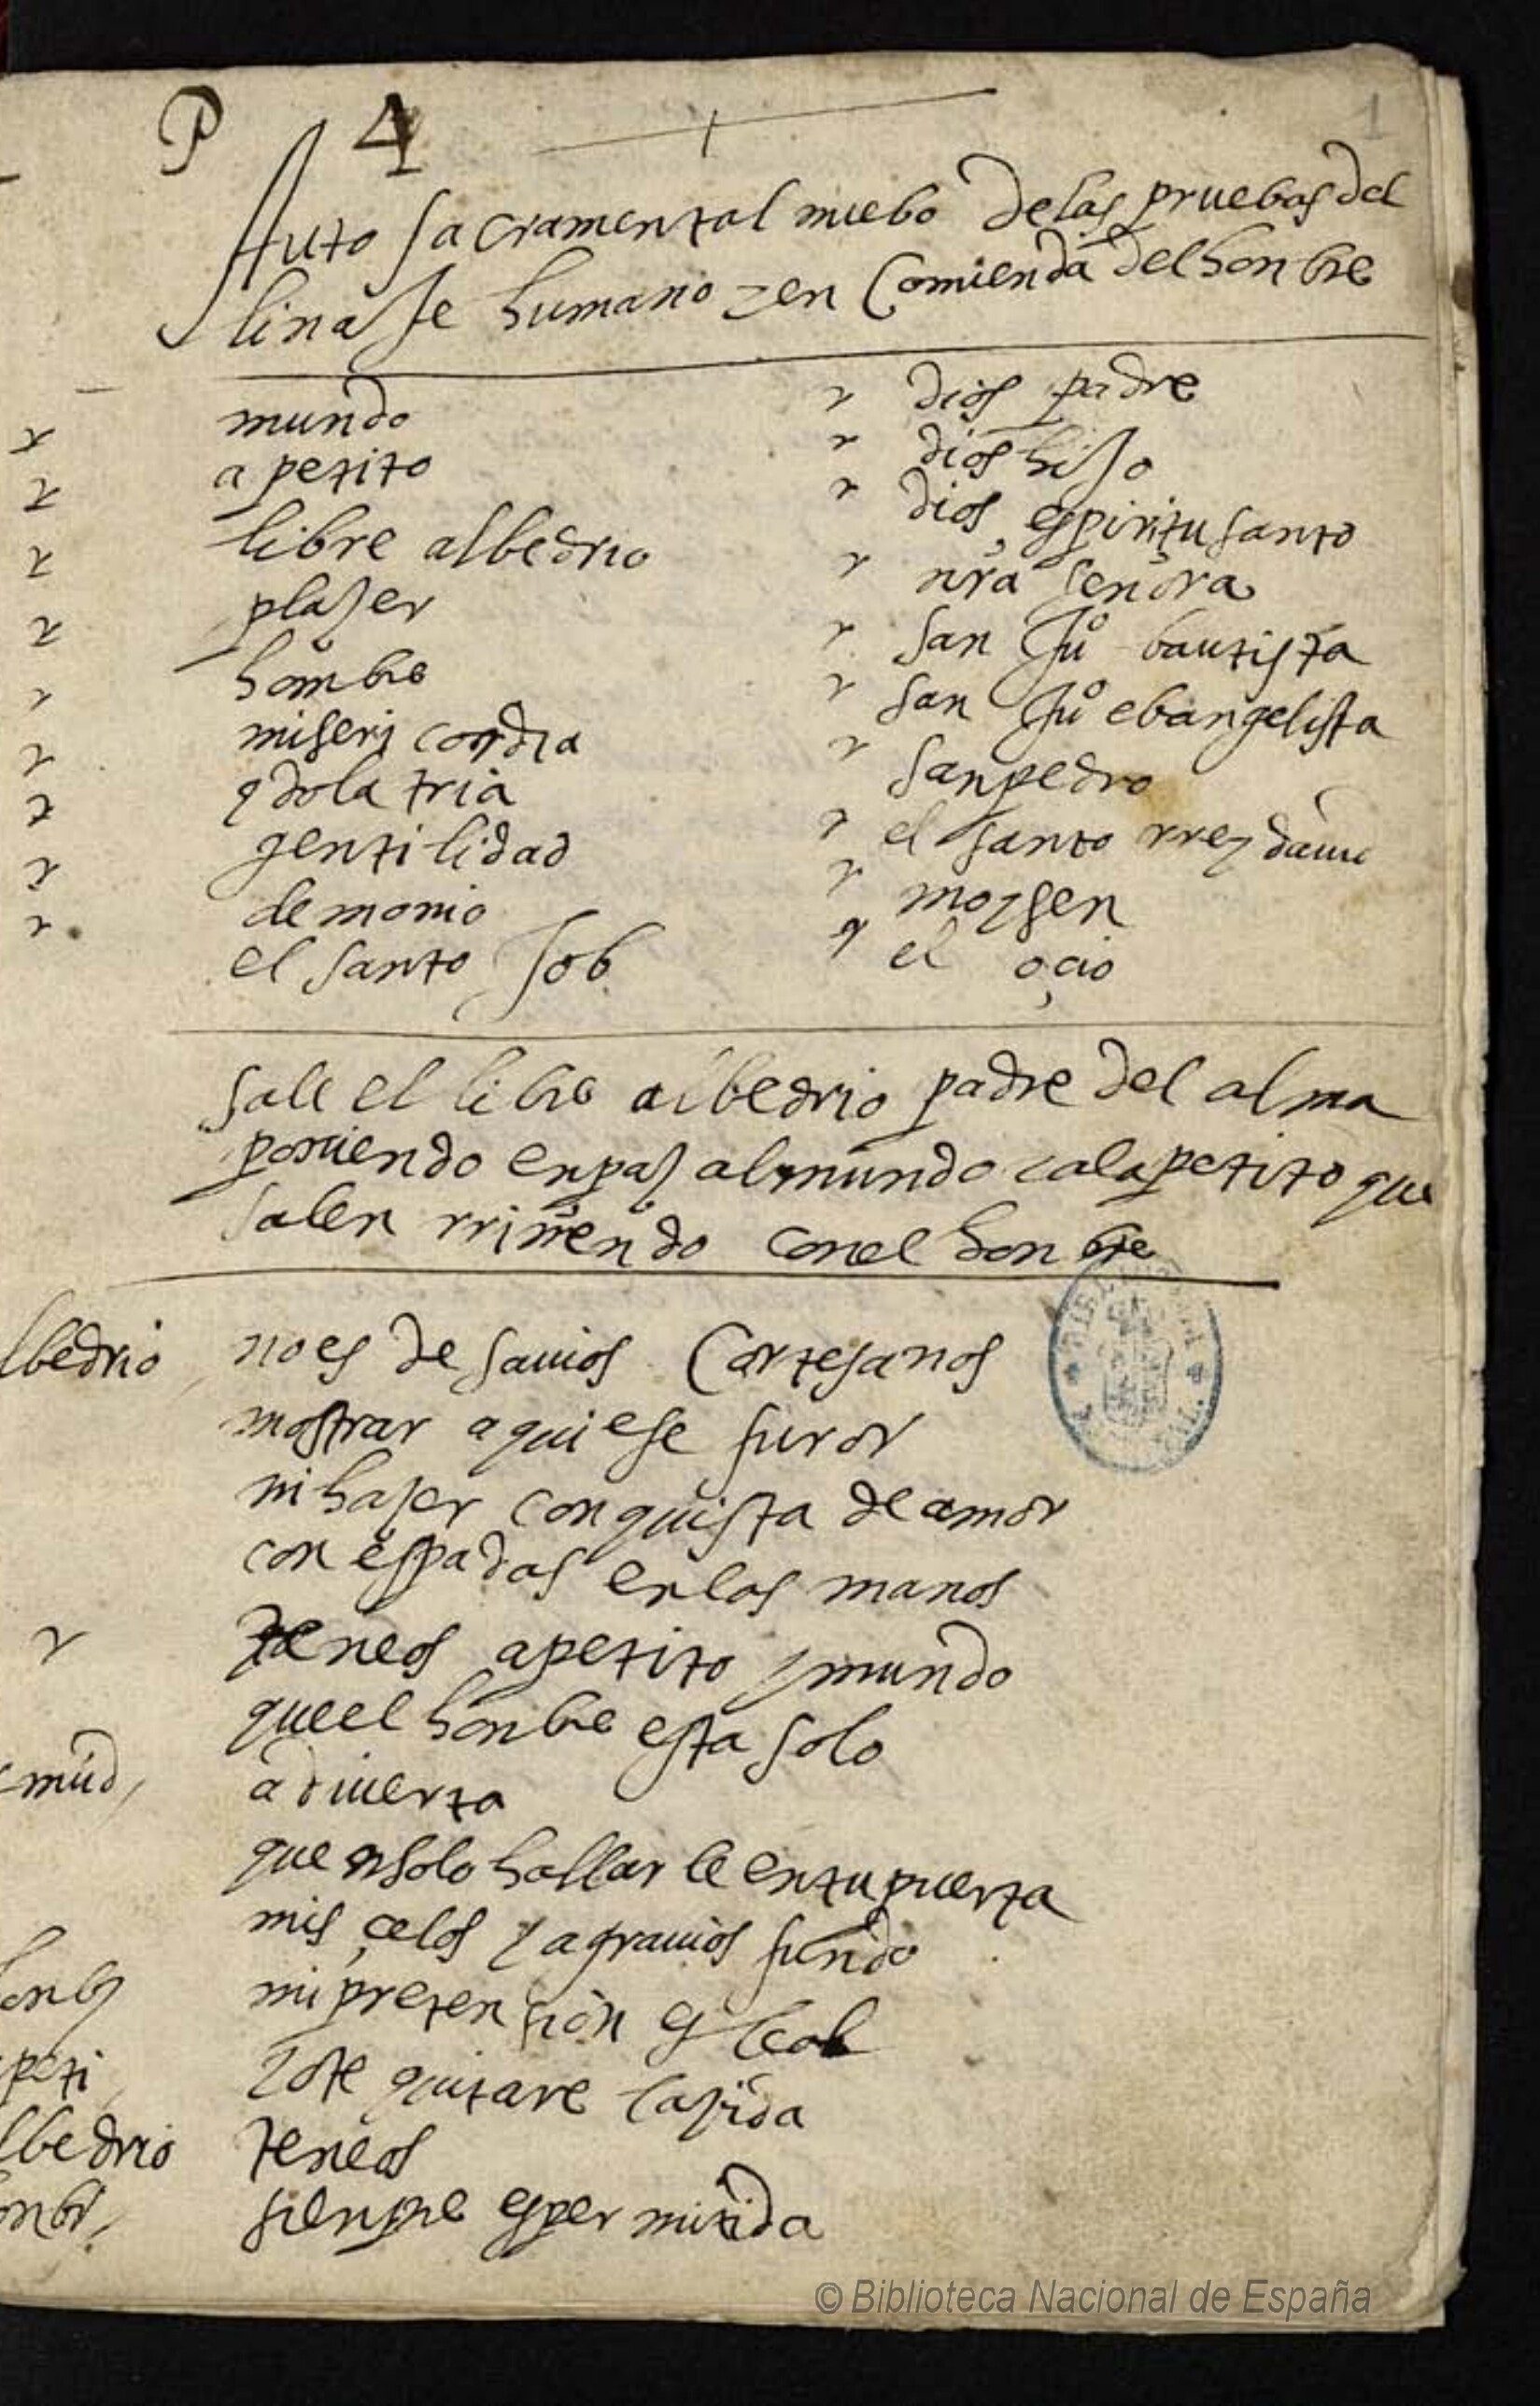 P 4
1
Auto sacramental nuebo de las pruebas del
linaje humano y en Comienda del honbre
mundo
apetito
libre albedrio
plaser
hombre
misericordia
ydolatria
gentilidad
demonio
el santo Job
dios padre
dios hijo
dios espiritu santo
nra señora
san Juº bautista
san Juº ebangelista
san pedro
el santo rrey
moysen
el oçio
sale el libre albedrio padre del alma
poniendo en paz al mundo y al apetito que
salen rriñendo con el honbre
lbedrio no es de sauios Cortesanos
mostrar aqui ese furor
ni haser conquista de amor
con espadas en las manos
teneos apetito y mundo
que el honbre esta solo
mūd aduierta
que en solo hallarle en tu puerta
mis çelos y agrauios fundo
mi pretension es leal
peti yo te quitare la vida
lbedrio teneos
siempre es permitida
© Biblioteca Nacional de España